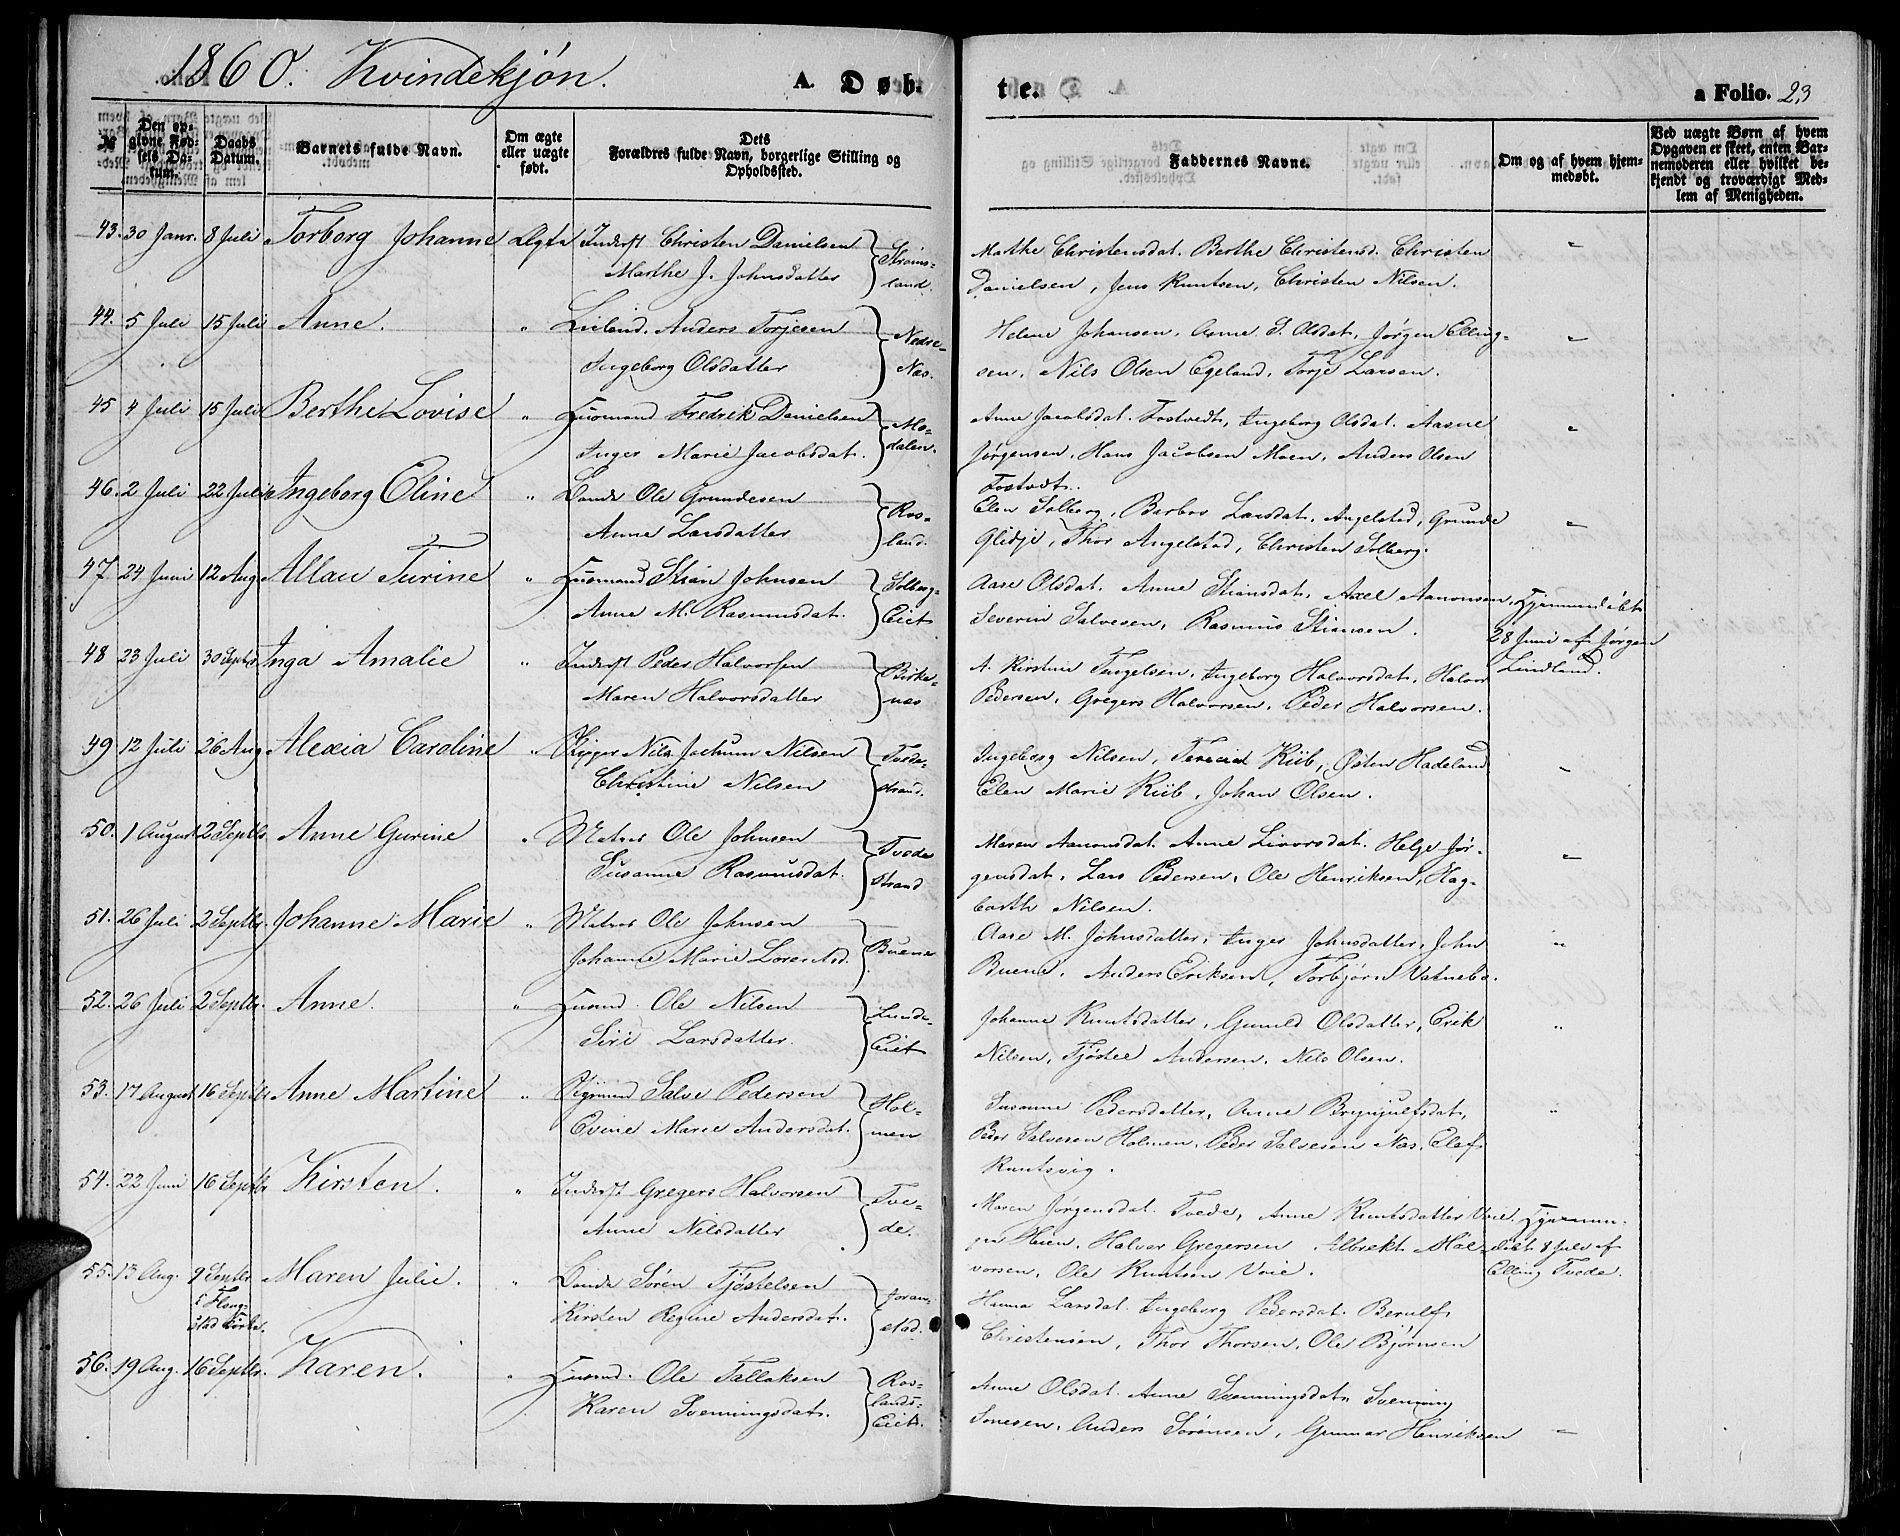 1860. Kvindekjøn.
A. Døbte.
a Folio. 23
№
Den opgivne Fødsels Datum.
Daabs Datum.
Barnets fulde Navn.
Om ægte eller uægte født.
Dets Forældres fulde Navn, borgerlige Stilling og Opholdssted.
Faddernes Navne.
Om og af hvem hjemmedøbt.
Ved uægte Børn af hvem Opgaven er skeet, enten Barnemoderen eller hvilket bekjendt og troværdigt Medlem af Menigheden.
43. 30 Janr. 8 Juli Torborg Johanne Ægte Inderst Christen Danielsen
Marthe J. Johnsdatter
Strømsland.
Marthe Christensdat. Berthe Christensd. Christen
Danielsen, Jens Knutsen, Christen Nilsen.
"
44. 5 Juli 15 Juli Anne. " Leilend. Anders Torjesen
Ingeborg Olsdatter
Nedre-Næs.
Helene Johansen, Anne S. Olsdat, Jørgen Elling-
sen, Nils Olsen Egeland, Torje Larsen.
"
45 4 Juli 15 Juli Berthe Lovise " Husmand Fredrik Danielsen
Inger Marie Jacobsdat.
Modalen.
Anne Jacobsdat. Fostvedt, Ingeborg Olsdat. Aasne
Jørgensen, Hans Jacobsen Moen, Anders Olsen
Fostvedt.
"
46. 2 Juli 22 Juli Ingeborg Eline " Bonde Ole Grundesen
Anne Larsdatter
Rosland.
Elen Solberg, Barbro Larsdat. Angelstad, Grunde
Glidje, Thor Angelstad, Christen Solberg.
"
47. 24 Juni 12 Aug. Allau Turine " Husmand Stian Johnsen
Anne M. Rasmusdat.
Solberg-Eiet
Aase Olsdat. Anne Stiansdat. Axel Aanonsen,
Severin Salvesen, Rasmus Stiansen.
Hjemmedøbt
28 Juni af Jørgen
Lindland.
48 23 Juli 30 Septbr Inga Amalie " Inderst Peder Halvorsen
Maren Halvorsdatter
Birkenæs
A. Kirstine Tengelsen, Ingeborg Halvorsdat, Halvor
Pedersen, Gregers Halvorsen, Peder Halvorsen.
49 12 Juli 26 Aug. Alexia Caroline " Skipper Nils Jochum Nilsen
Christine Nilsen
Tvedestrand.
Ingeborg Nilsen, Kiib, Østen Hadeland
Elen Marie Kiib, Johan Olsen.
"
50. 1 August 2 Septbr Anne Gurine " Matros Ole Johnsen
Susanne Rasmusdat.
Tvedestrand
Maren Aanonsdat. Anne Livorsdat. Helge Jør-
gensdat, Lars Pedersen, Ole Henriksen, Hag-
barth Nilsen.
"
51. 26 Juli 2 Septbr. Johanne Marie " Matros Ole Johnsen
Johanne Marie
Buene
Aase M. Johnsdatter, Inger Johnsdatter, John
Buene, Anders Eriksen, Torbjørn Vatnebo.
"
52. 26 Juli 2 Septbr. Anne. " Husmd. Ole Nilsen
Siri Larsdatter.
Lunde-Eiet
Johanne Knutsdatter, Gunild Olsdatter, Erik
Nilsen, Tjøstel Andersen, Nils Olsen.
"
53. 17 August 16 Septbr Anne Martine " Salve Pedersen
Evine Marie Andersdat.
Holmen
Susanne Pedersdatter, Anne Brynjulfsdat,
Peder Salvesen Holmen, Peder Salvesen Næs, Elef
Knutsvig.
"
54. 22 Juni 16 Septbr Kirsten. " Inderst Gregers Halvorsen
Anne Nilsdatter
Tvede.
Maren Jørgensdat. Tvede, Anne Knutsdatter Voie,
Heien, Halvor Gregersen, Albrekt Hal-
vorsen, Ole Knutsen Voie.
Hjemme-
døbt 8 Juli af
Elling Tvede.
55. 13 Aug. 9 Septbr. i Flougstad Kirke. Maren Julie. " Bonde Søren Tjøstelsen
Kirsten Regine Andersdat.
Joranstad.
Hanna Larsdat. Ingeborg Pedersdat. Berulf
Christensen, Thor Thorsen, Ole Bjørnsen
56. 19 Aug. 16 Septbr. Karen. " Husmd. Ole Tallaksen
Karen Svenningsdat.
Roslands-Eiet.
Anne Olsdat. Anne Svenningsdat. Svenning
Sonesen, Anders Sørensen, Gunnar Henriksen
"